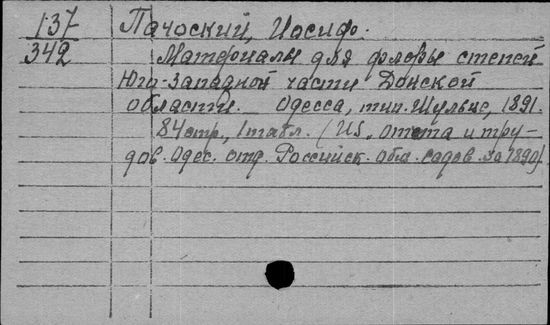 137 Пачоский, Иосиф.
342 Материалы для флоры степей
Юго-Западной части Донской
области. Одесса, тип. Шульце, 1891.
84 стр., 1 табл. (Из "Отчета и тру-
дов. Одес. отд. Российск. общ. садов. за 1890).